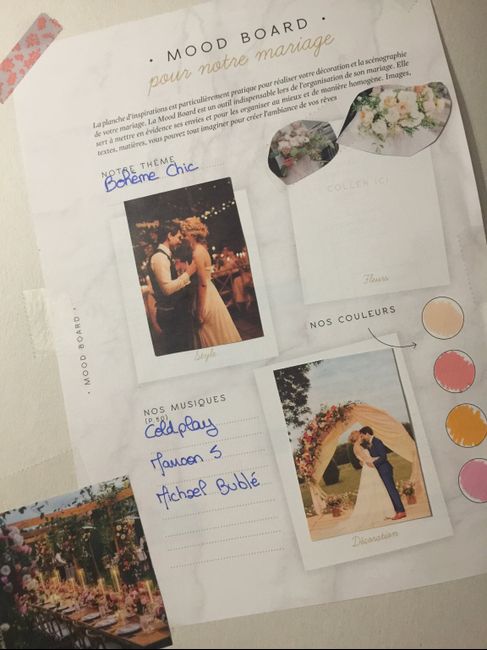 • MOOD BOARD •
pour notre mariage
La planche d'inspirations est particulièrement pratique pour réaliser votre décoration et la scénographie
de votre mariage. La Mood Board est un outil indispensable lors de l'organisation de son mariage. Elle
sert à mettre en évidence ses envies et pour les organiser au mieux et de manière homogène. Images,
textes, matières, vous pouvez tout imaginer pour créer l'ambiance de vos rêves
NOTRE THÈME
Bohème Chic
COLLER ICI
Fleurs
Style
NOS COULEURS
• MOOD BOARD •
NOS MUSIQUES
(P.50)
Coldplay
Maroon 5
Michael Bublé
Décoration